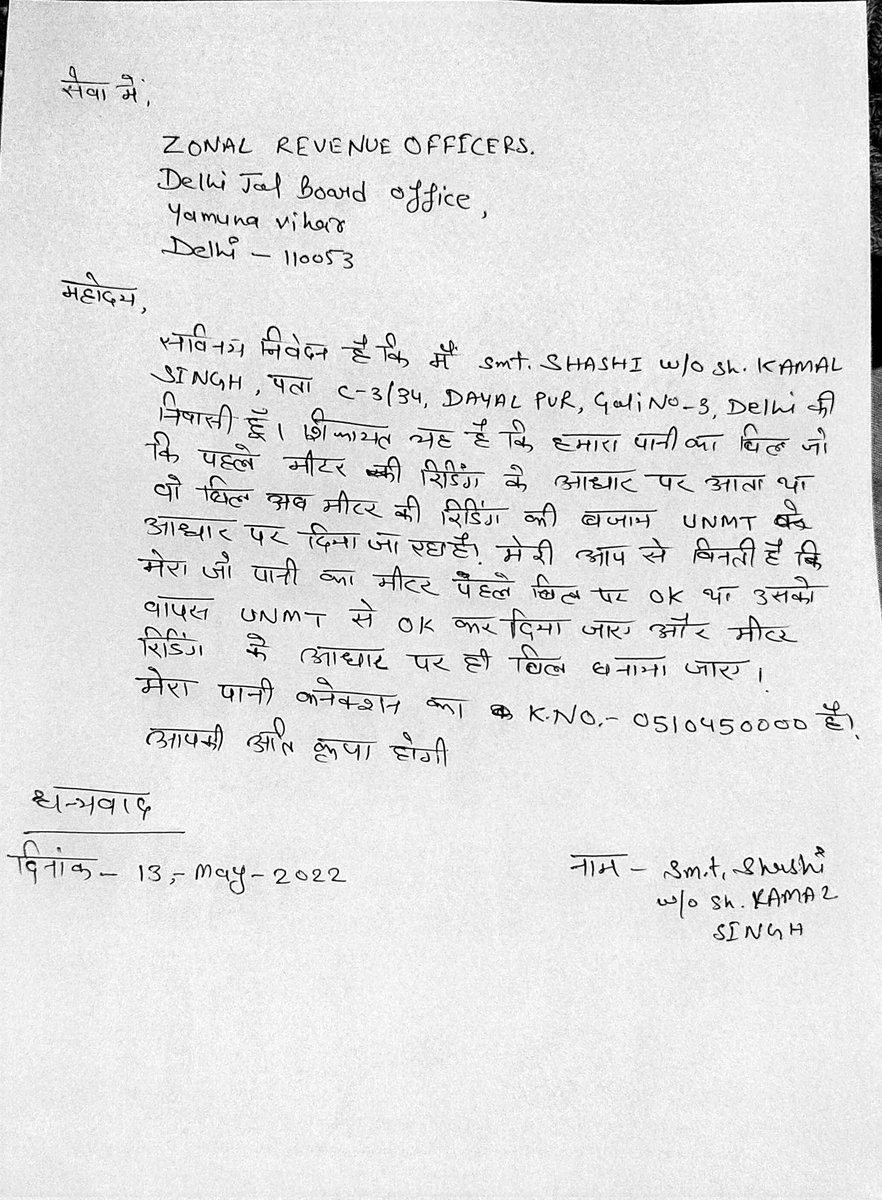 सेवा में,
ZONAL REVENUE OFFICERS.
Delhi Jal Board office,
Yamuna vihar
Delhi - 110053
महोदय,
सविनय निवेदन है कि मैं Smt. SHASHI w/o Sh. KAMAL
SINGH, पता C-3/34, DAYAL PUR, Gali No-3, Delhi की
निवासी हूँ। शिकायत यह है कि हमारा पानी का बिल जो
कि पहले मीटर की रिडिंग के आधार पर आता था
वो बिल अब मीटर की रिडिंग की बजाय UNMT के
आधार पर दिया जा रहा है। मेरी आप से विनती है कि
मेरा जो पानी का मीटर पहले बिल पर OK था उसको
वापस UNMT से OK कर दिया जाए और मीटर
रिडिंग के आधार पर ही बिल बनाया जाए।
मेरा पानी कनेक्शन का K.NO.- 0510450000 है।
आपकी अति कृपा होगी
धन्यवाद
दिनांक - 13,- May - 2022
नाम - Sm.t, Shashi
w/o Sh. KAMAL
SINGH